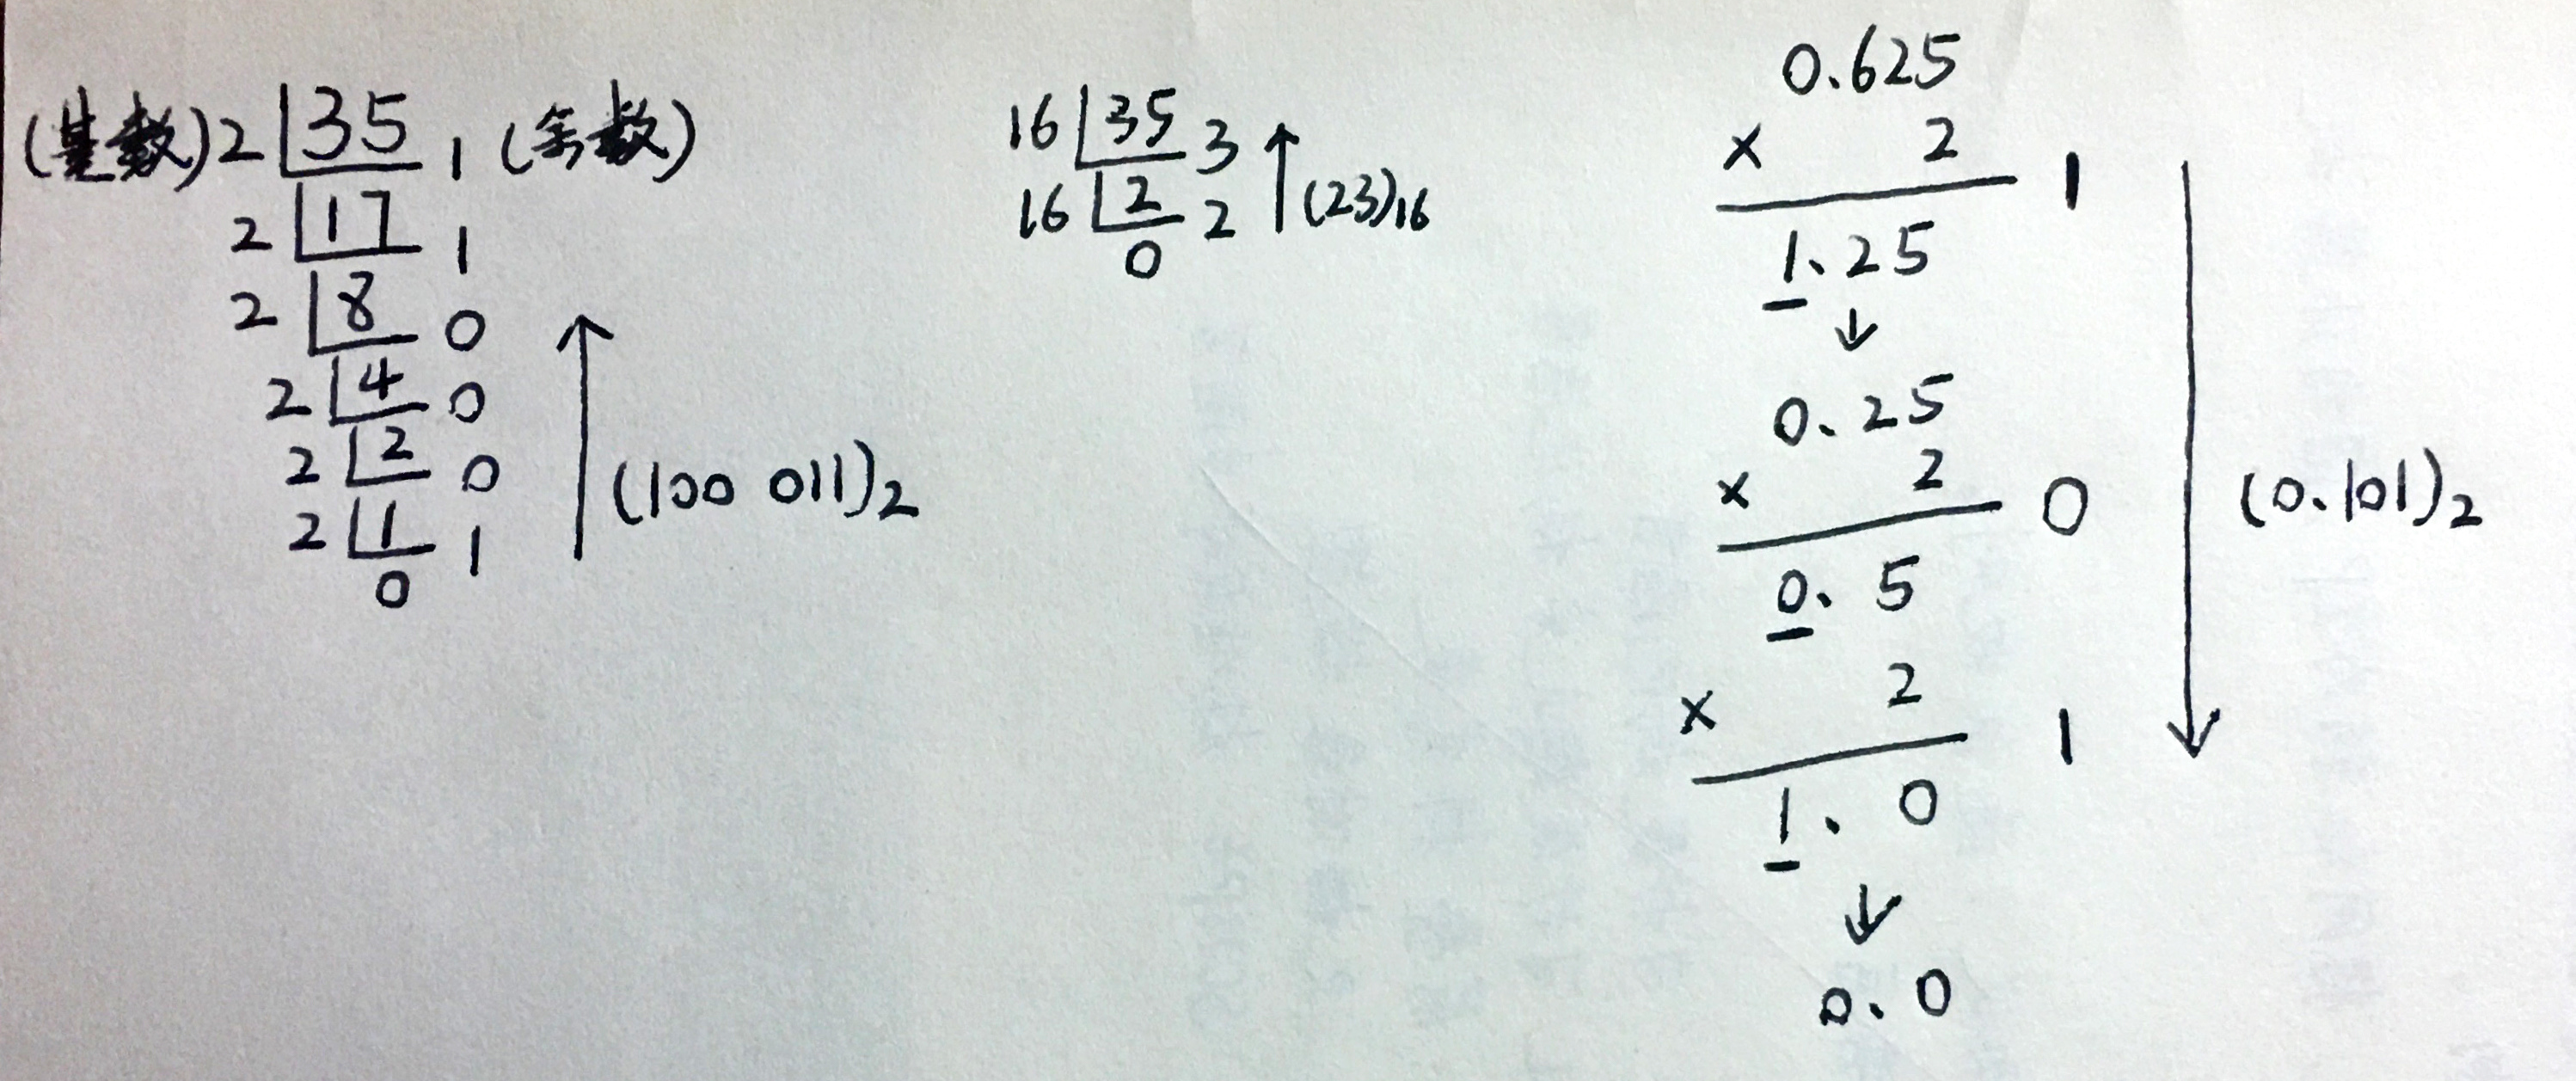 (基数) 2 35 1 (余数)
2 17 1
2 8 0
2 4 0
2 2 0
2 1 1
0
(100 011)2
16 35 3
16 2 2
0
(23)16
0.625
× 2 1
1.25
↓
0.25
× 2 0
0.5
× 2 1
1.0
↓
0.0
(0.101)2